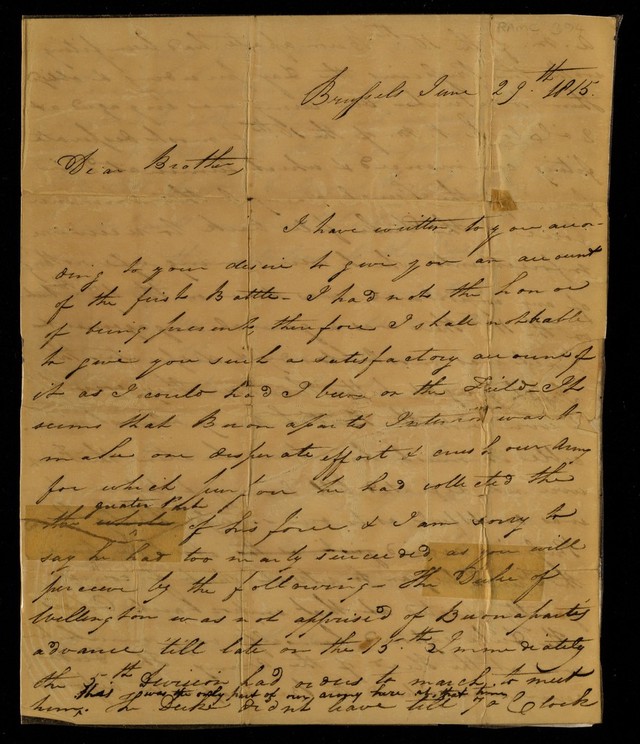 Brussels June 29.th 1815.
Dear Brother,
I have written to you accor-
ding to your desire to give you an account
of the first Battle - I had not the honor
of being present, therefore I shall not be able
to give you such a satisfactory account of
it as I could had I been on the Field - It
seems that Buonaparte's Intention was to
make one desperate effort & crush our Army
for which purpose he had collected the
greater part
the whole of his force & I am sorry to
say he had too nearly succeeded as you will
perceive by the following - The Duke of
Wellington was not apprised of Buonaparte's
advance 'till late on the 15.th Immediately
the 5th Division had orders to march to meet
this was the only part of our army here at that time
him. The Duke didn't leave till 7 o'Clock